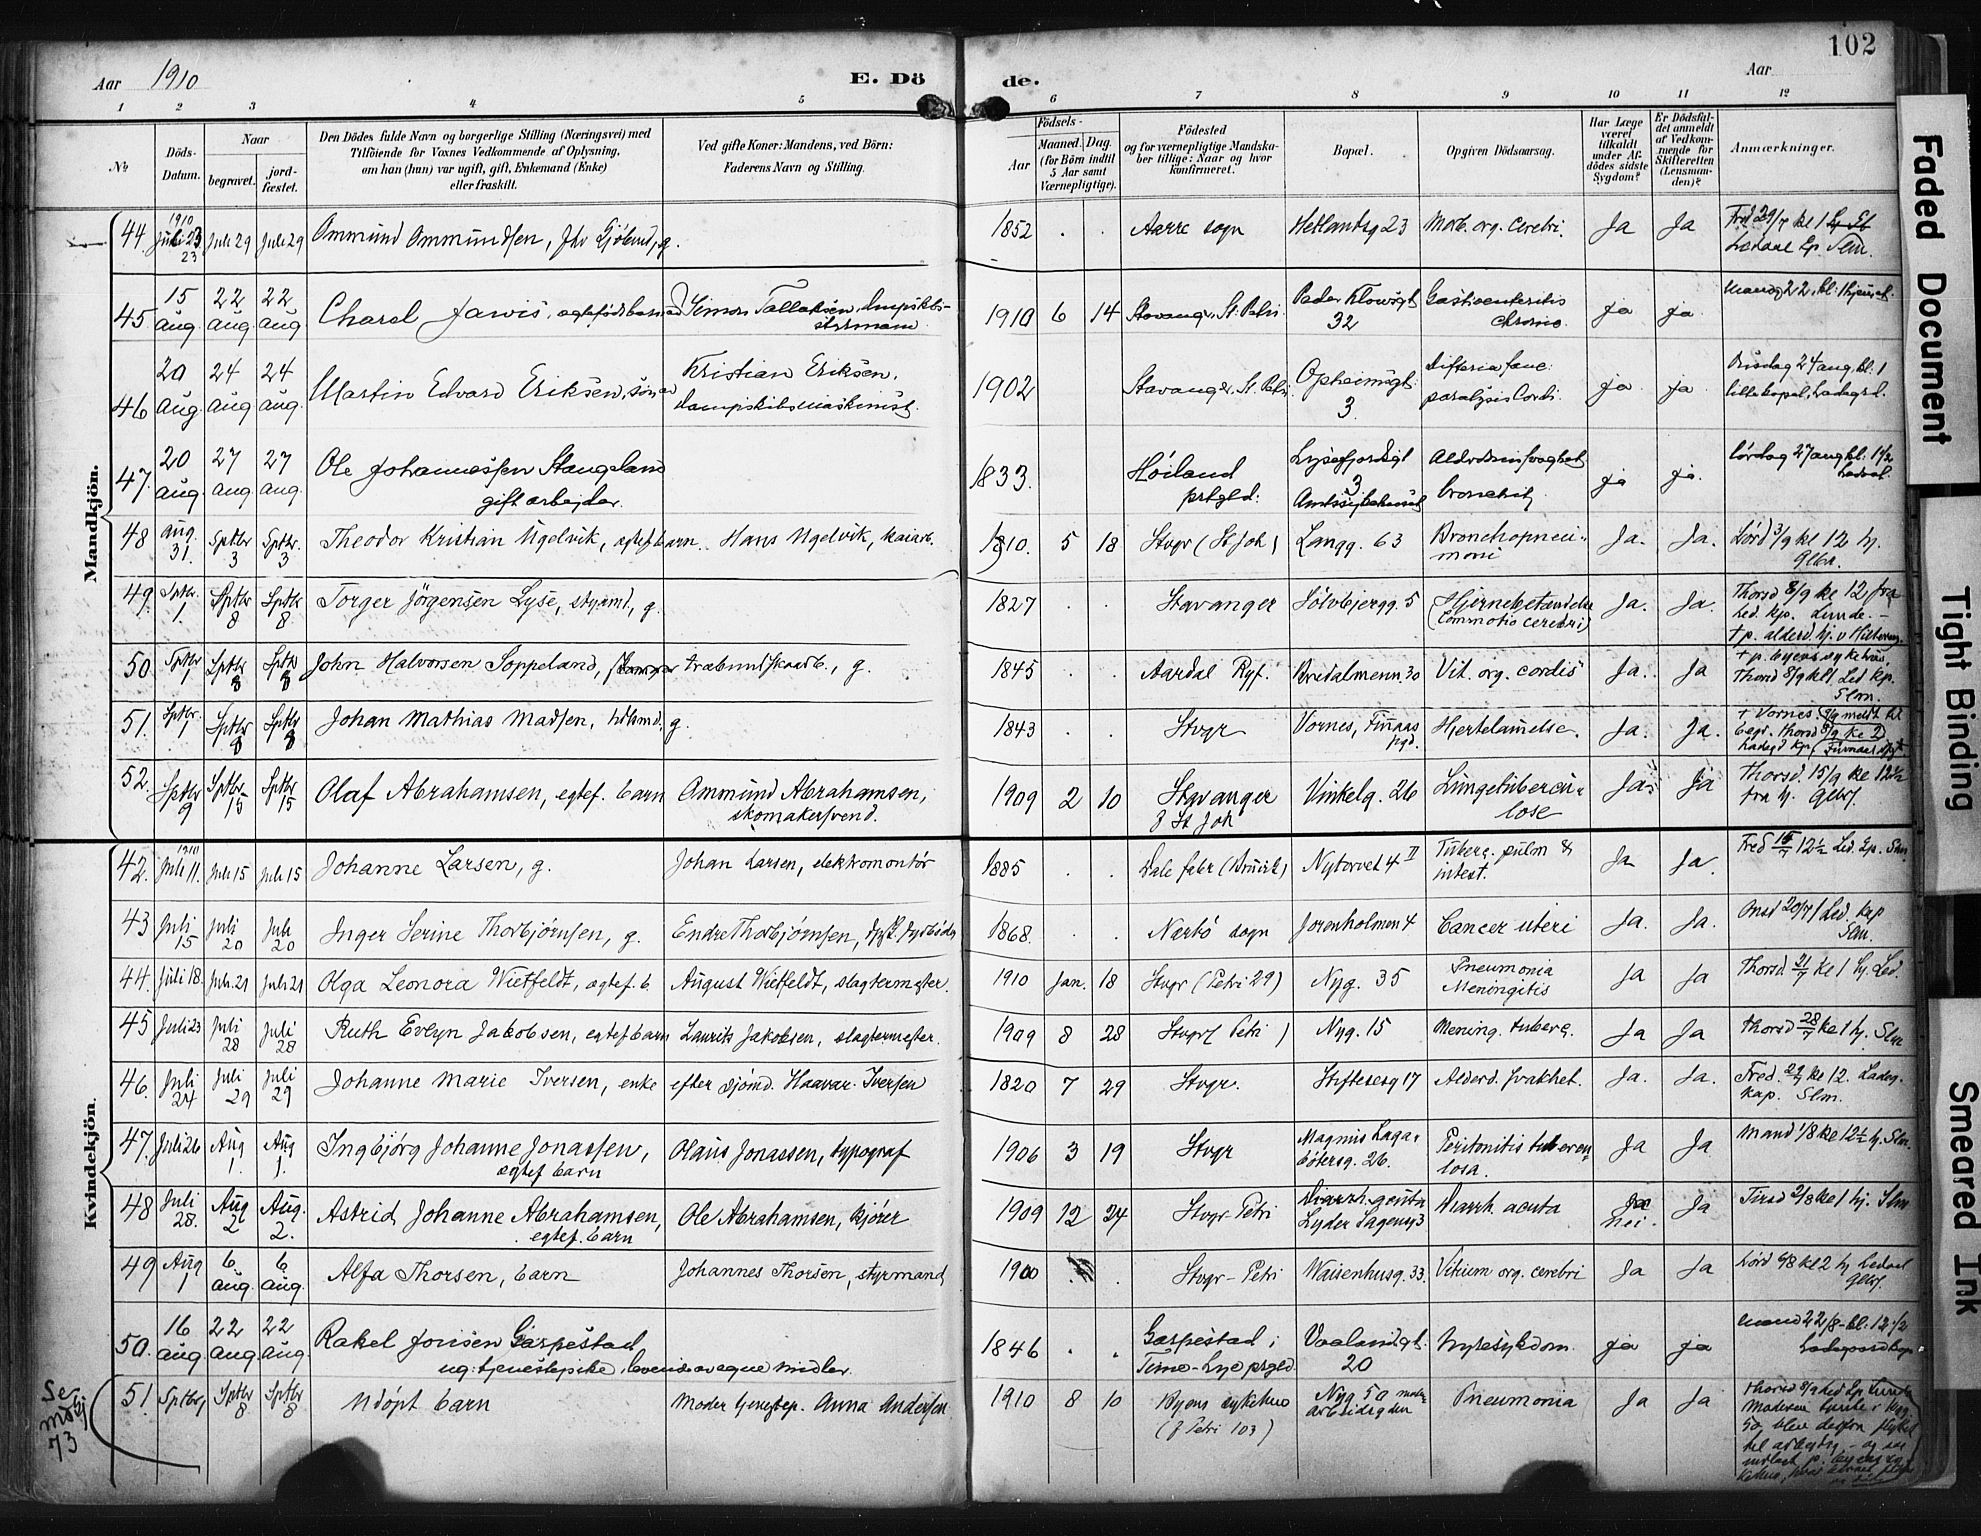 102
Aar 1910 E. Döde. Aar
1 2 3 4 5 6 7 8 9 10 11 12
№
Döds-Datum.
Naar
begravet.
jord-fæstet.
Den Dödes fulde Navn og borgerlige Stilling (Næringsvei) med
Tilföiende for Voxnes Vedkommende af Oplysning,
om han (hun) var ugift, gift, Enkemand (Enke)
eller fraskilt.
Ved gifte Koner: Mandens, ved Börn:
Faderens Navn og Stilling.
Födsels-
Aar
Maaned. Dag.
(for Börn indtil
5 Aar samt
Værnepligtige).
Födested
og for værnepligtige Mandska-
ber tillige: Naar og hvor
konfirmeret.
Bopæl.
Opgiven Dödsaarsag.
Har Læge
været
tilkaldt
under Af-
dödes sidste
Sygdom?
Er Dödsfal-
det anmeldt
af Vedkom-
mende for
Skifteretten
(Lensman-
den)?
Anmærkninger.
Mandkjön.
44. 1910 Juli 23 Juli 29 Juli 29 Ommund Ommundsen, g. 1852 . . Aarre sogn Hetlandsg 23 Morb. org. cerebri. Ja Ja
45 15 aug 22 aug 22 aug Charel Jarvis, Simon Tallaksen, styrmann 1910 6 14 Stavanger, St. Petri Peder Klowsgt 32 Gastroenteritis chronic. ja ja
46 20 aug. 24 aug 24 aug. Martin Edvard Eriksen, søn av Kristian Eriksen, dampskibsmaskinist. 1902 Stavanger, St. Petri Opheimsgt. 3. Difteria fauc: paralysis cordi. ja ja Onsdag 24 aug. kl. 1
47. 20 aug. 27 aug 27 aug. Ole Johannessen Stangeland gift arbejder. 1833. Høiland prstgld. Lysefjordsgt 3 Alderdomssvaghet bronchit ja ja. lørdag 27 aug kl: 1½
48 aug. 31. Sptbr 3 Sptbr. 3 Theodor Kristian Ugelvik, egtef. barn. Hans Ugelvik, kaiarb. 1910. 5 18 Stvgr (St Joh) Langg. 63 Bronchopneumoni Ja. Ja. Lørd 3/9 kl 12 hj.
49. Sptbr. 1 Sptbr 8 Sptbr 8. Torger Jörgensen Lyse, styrmd., g. 1827 . . Stavanger Sölvbjergg. 5 Hjernebetændelse (Commotio cerebri) Ja. Ja. Thorsd 8/9 kl 12 fra Led. kp. Lunde. -
50 Sptbr 1 Sptbr 8 Sptbr 8 John Halvorsen Soppeland, g. 1845 . . Aardal Ryf. Bredalmenn. 30 Vit. org. cordis Ja. Ja Thorsd 8/9 kl 1 Led kp. Slm.
51. Sptbr. 1 Sptbr 8 Sptbr 8 Johan Mathias Madsen, g. 1843 . . Stvgr Vornes, Finnaas pgd. Hjertelamelse. Ja. Ja. + Vornes.
52. Sptbr 9 Sptbr. 15 Sptbr 15 Olaf Abrahamsen, egtef. barn Ommund Abrahamsen, skomakersvend. 1909 2 10 Stavanger St Joh Vinkelg. 26 Lungetuberculose Ja Ja Thorsd. 15/9 kl 12½ fra hj.
Kvindekjön.
42. 1910 Juli 11. Juli 15 Juli 15 Johanne Larsen, g. Johan Larsen, elektromontör 1885 . . Dale fabr (Bruvik) Nytorvet 4 II Tuberc. pulm & intest. Ja Ja. Fred 15/7 12½ Led. kp. Slm
43 Juli 15 Juli 20 Juli 20 Inger Serine Thorbjörnsen, g. Endre Thorbjörnsen, 1868. . . Nærbö sogn Jorenholmen 4 Cancer uteri Ja. Ja. Onsd 20/7 1 Led. kap Slm.
44. Juli 18. Juli 21 Juli 21 Olga Leonora Wietfeldt, egtef. b. August Wietfeldt, slagtermester. 1910 Jan. 18 Stvgr (Petri 29) Nyg. 35 Pneumonia Meningitis Ja Ja Thorsd 21/7 kl 1 hj. Led.
45 Juli 23 Juli 28 Juli 28 Ruth Evelyn Jakobsen, egtef barn Laurits Jakobsen, slagtermester. 1909 8 28 Stvgr (Petri ) Nyg. 15 Mening. tuberc. Ja Ja Thorsd 28/7 kl 1 hj. Slm
46. Juli 24 Juli 29 Juli 29 Johanne Marie Iversen, enke efter sjömd. Haavar Iversen 1820 7 29 Stvgr. Stiftelsesg 17 Alderd. svakhet. Ja. Ja. Fred. 29/7 kl 12. Ladeg. kap. Slm.
47. Juli 26 Aug 1. Aug 1. Ingbjörg Johanne Jonassen, egtef barn Olaus Jonassen, typograf 1906 3 19 Stvgr Magnus Lagabötersg. 26. Peritonitis tuberculosa. Ja Ja Mand 1/8 kl 12½ hj. Slm.
48 Juli 28. Aug 2 Aug. 2. Astrid Johanne Abrahamsen, egtef. barn Ole Abrahamsen, kjörer 1909 12 24 Stvgr Petri Diarrh. acuta Lyder Sagensg 3 Diarrh acuta Ja nei. Ja Tirsd 2/8 kl 1 hj. Slm
49 Aug 1 6 aug. 6 aug. Alfa Thorsen, barn Johannes Thorsen, styrmand 1900 . . Stvgr - Petri Waisenhusg. 33. Vitium org. cerebri Ja Ja Lørd 6/8 kl 2 hj
50. 16 aug. 22 aug 22 aug. Rakel Jonsen Garpestad ug: tjenestepike, levende av egne midler. 1846 . . Garpestad i Time-Lye prgld. Vaalandgt. 20 Nyresykdom. ja ja mand 22/8 - kl: 12½
51 Sptbr 1 Sptbr 8 Sptbr 8 Udöpt barn Moder tjenestep. Anna Andersen 1910 8 10 Byens sykehus (f Petri 103) Nyg. 50 Pneumonia Ja Ja
Se
73
Faded Document
Tight Binding
Smeared Ink